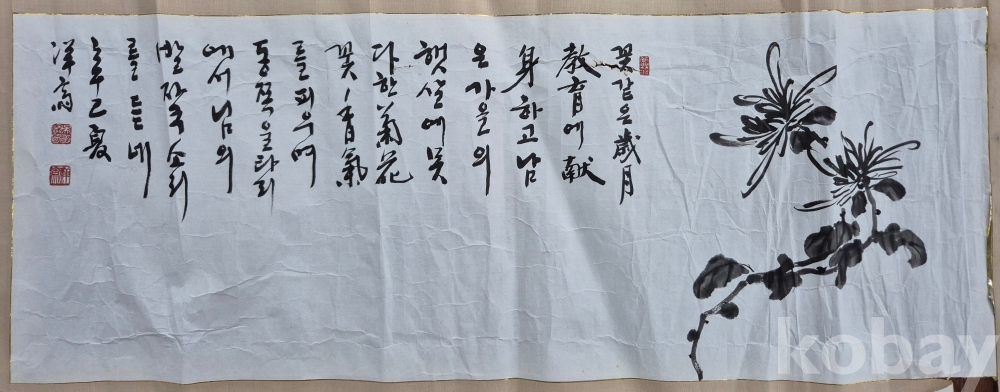 꽃같은 歲月
敎育에 献
身하고 남
은 가을의
햇살에 못
다한 菊花
꽃、香氣
를 피우며
동쪽 울타리
에서 님의
발자국 소리
를 듣네
kobay